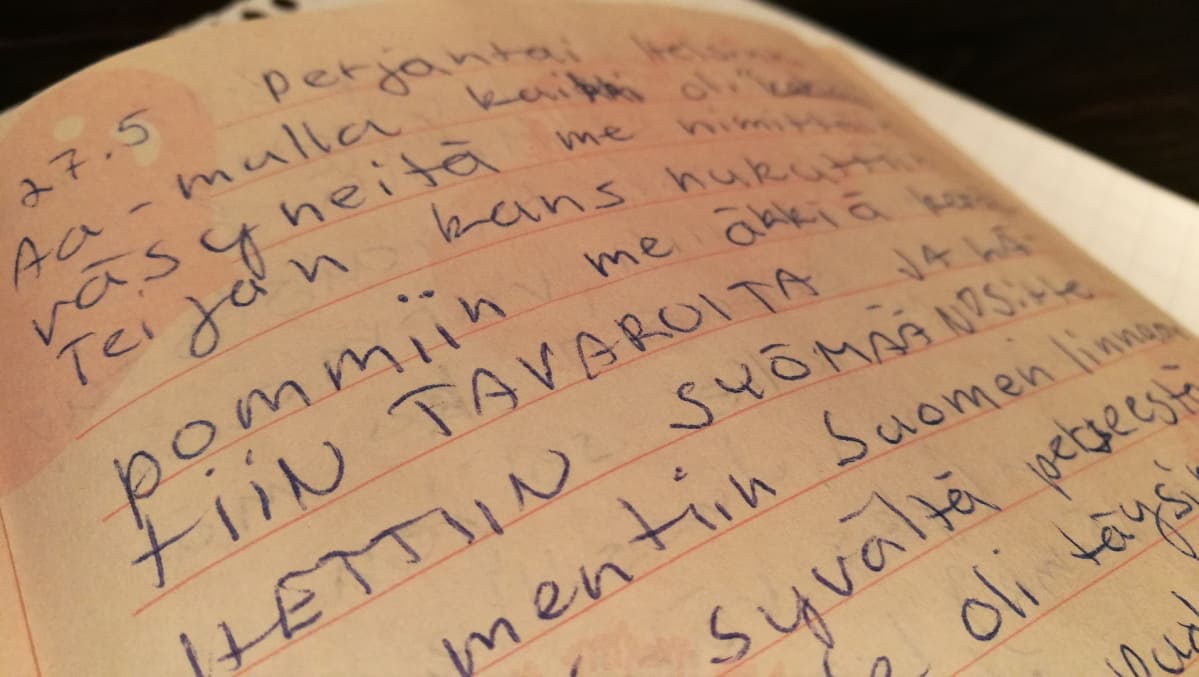 27.5 perjantai
Aa-mulla kaikki oli
väsyneitä me
Teijan kans nukuttiin
pommiin me äkkiä
tiin TAVAROITA JA LÄ-
HETTIIN SYÖMÄÄN sitte
mentiin Suomenlinnaan
syvältä perseestä
oli täysi